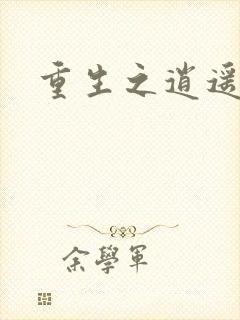 重生之逍遥
余學軍